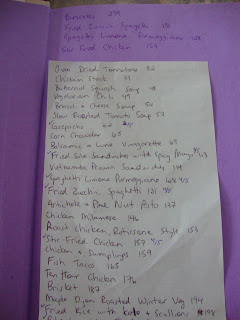 Fried Zucchini Spaghetti 151
Spaghetti Limone Parmeggiano 128
Stir Fried Chicken 157
Oven Dried Tomatoes 32
Chicken Stock 37
Butternut Squash Soup 48
Vegetarian Chili 49
Broccoli & Cheese Soup 50
Slow Roasted Tomato Soup 54
Gazpacho 62
Corn Chowder 65
Balsamic & Lime Vinaigrette 69
Fried Sole Sandwiches with Spicy Mayo 113
Vietnamese Prawn Sandwiches 114
Spaghetti Limone Parmeggiano 128
Fried Zucchini Spaghetti 121
Artichoke & Pine Nut Pasta 137
Chicken Milanese 146
Roast Chicken, Rotisserie Style 153
Stir-Fried Chicken 157 4/5
Chicken & Dumplings 159
Fish Tacos 165
Ten Hour Chicken 176
Brisket 187
Maple Dijon Roasted Winter Veg 194
Fried Rice with Kale & Scallions 198